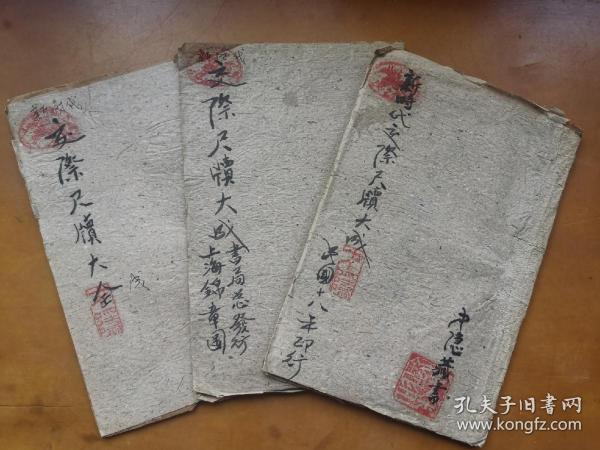 新時代
交際尺牘大全
成
新時代
交際尺牘大成
上海錦章圖
書局总發行
新時代交際尺牘大成
中國十八年印行
中隐藏書
孔夫子旧書网
www.kongfz.com